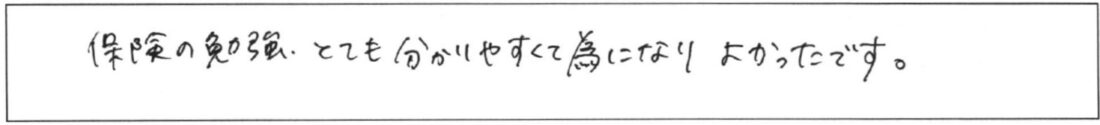 保険の勉強、とても分かりやすくて為になりよかったです。